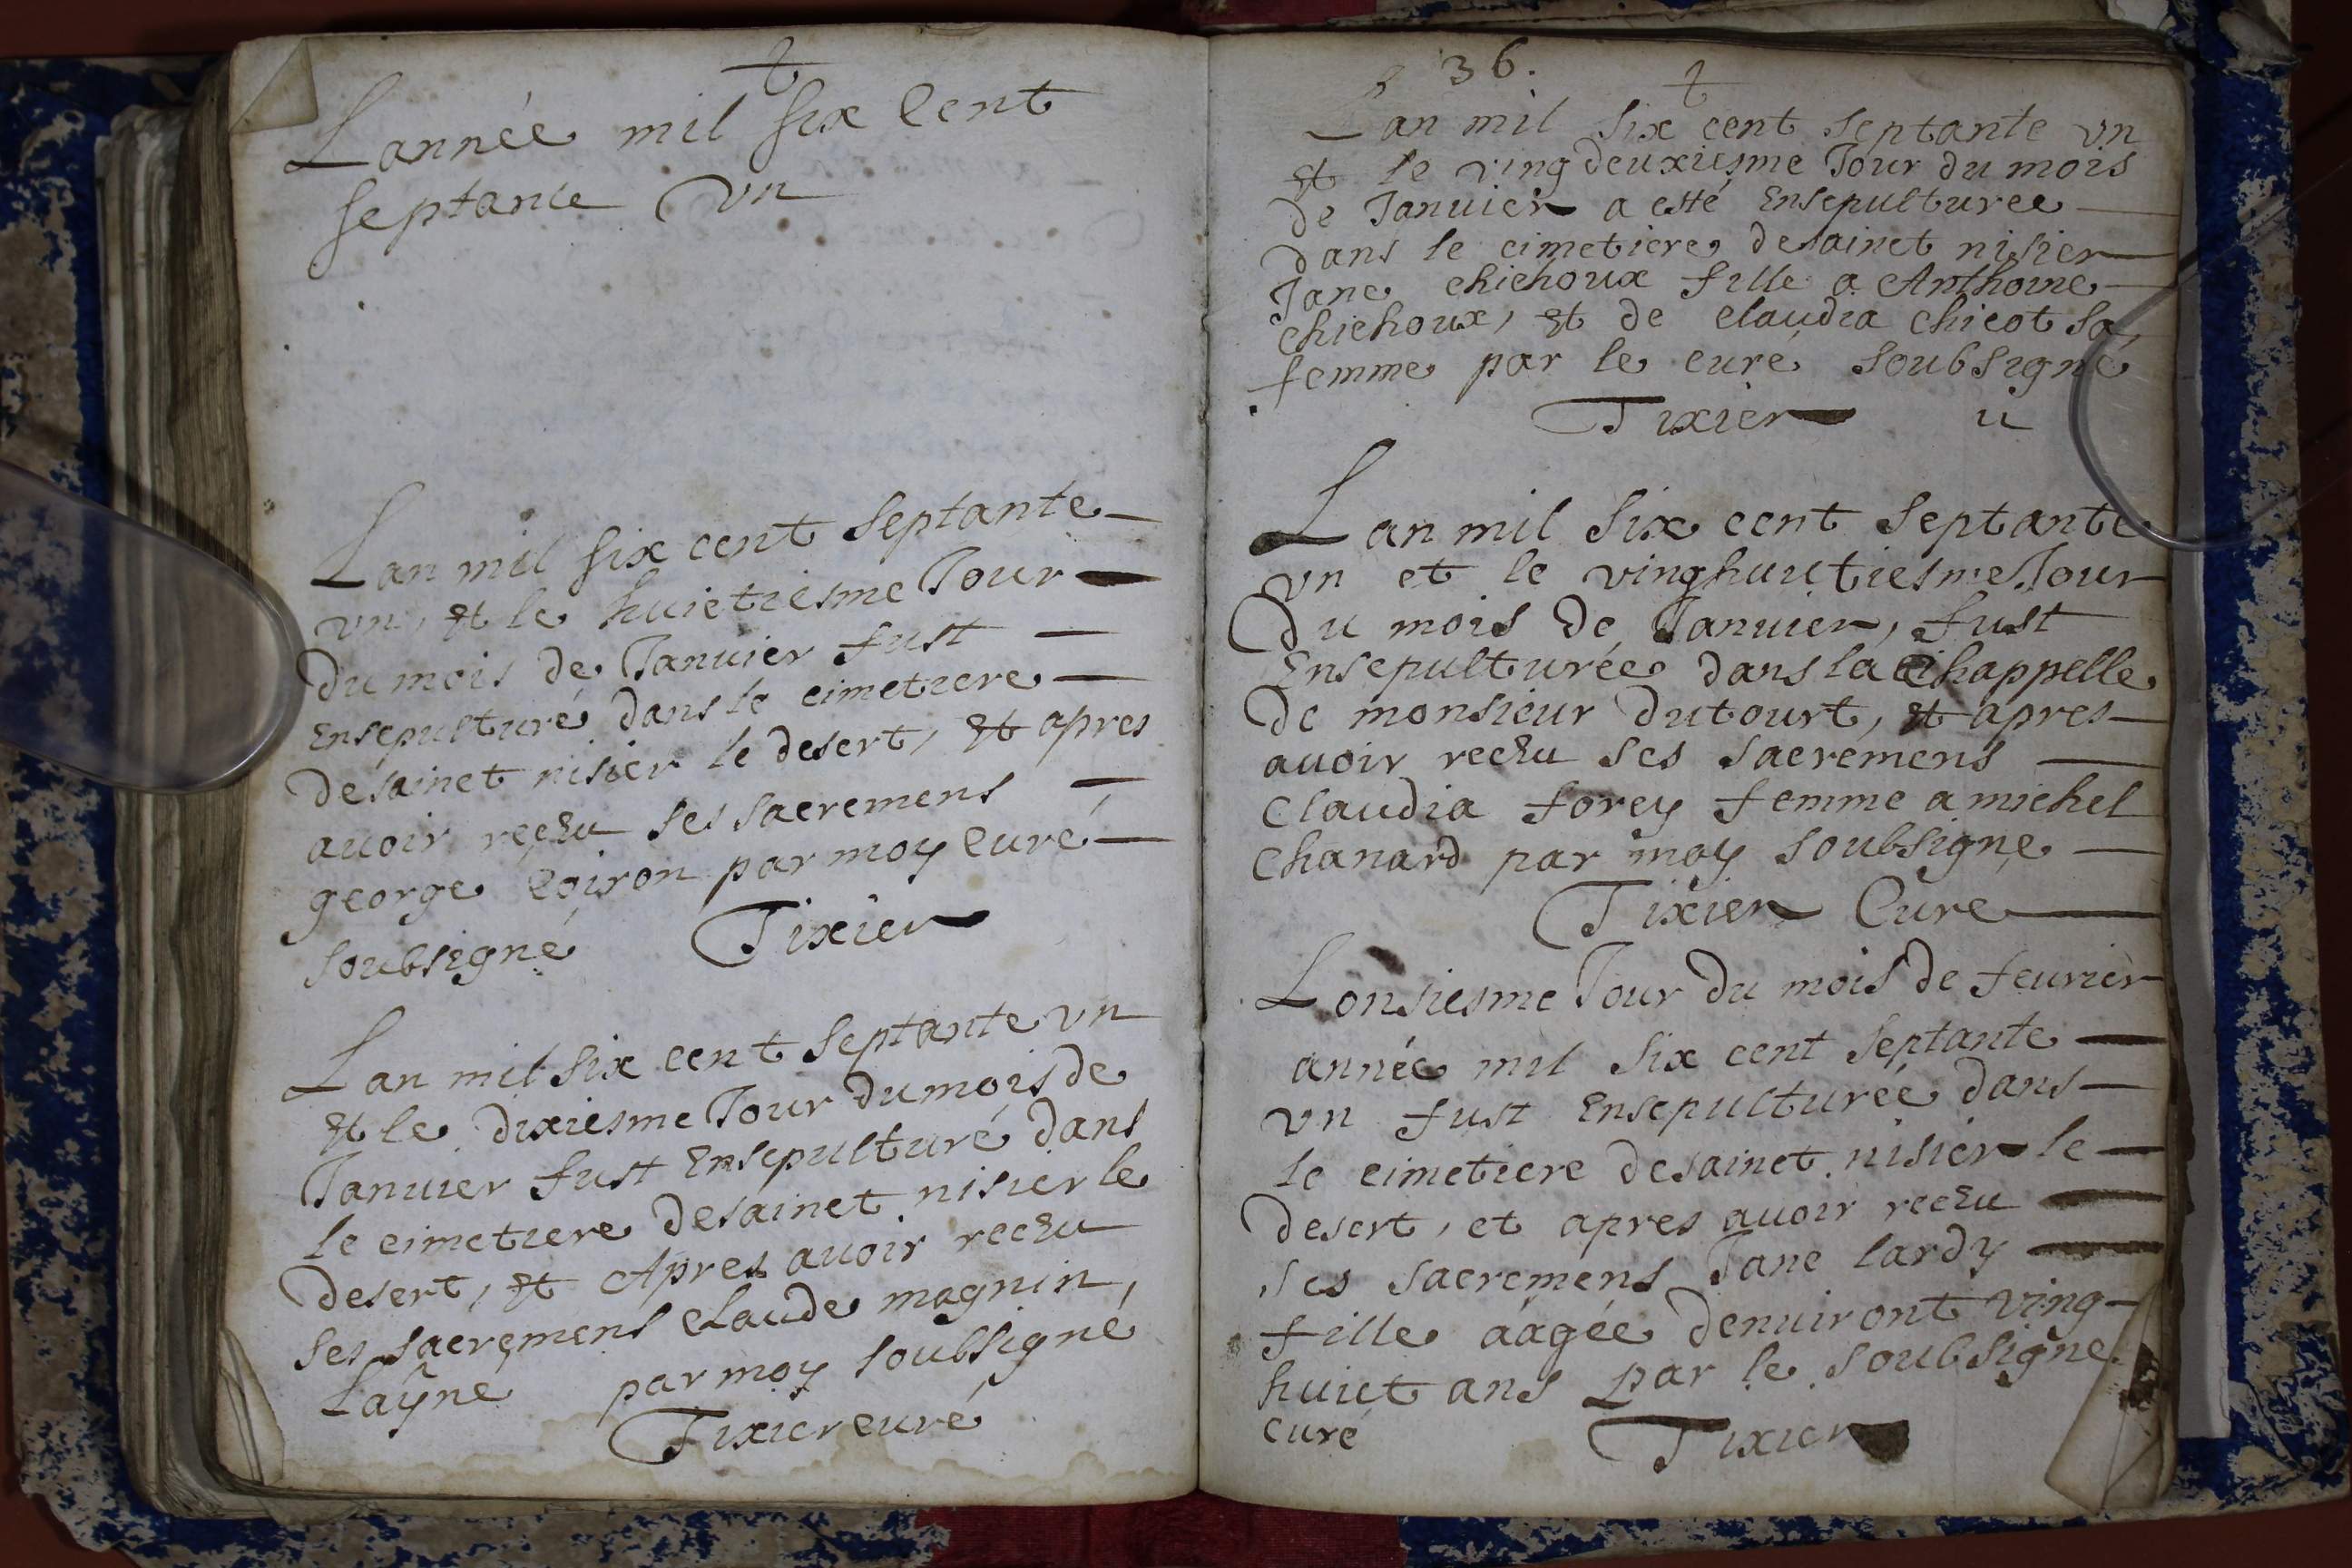 Lannée mil six Cent
septante Vn
Lan mil six cent septante
vn, et le huictiesme Jour
du mois de Januier fust
Ensepulturé dans le cimetiere
de sainct nisier le desert, et apres
auoir reczu ses sacremens
george Coiron par moy Curé
soubsigné Tixier
Lan mil six cent septante vn
et le dixiesme Jour du mois de
Januier fust Ensepulturé dans
le cimetiere de sainct nisier le
desert, et Apres auoir reczu
ses sacremens Claude magnin,
Layné par moy soubsigné
Tixier curé
36.
Lan mil six cent septante vn
et le ving deuxiesme Jour du mois
de Januier a esté Ensepulturee
dans le cimetiere de sainct nisier
Jane chichoux fille a Anthoine
chichoux, et de claudia chicot sa
femme par le curé soubsigné
Tixier u
Lan mil six cent septante
vn et le vinghuitiesme Jour
Du mois de Januier, fust
Ensepulturée dans la Chappelle
de monsieur dutourt, et apres
auoir reczu ses sacremens
Claudia forey femme a michel
Chanard par moy soubsigne
Tixier Cure
Lonsiesme Jour du mois de feurier
année mil six cent septante
vn fust Ensepulturée dans
le cimetiere de sainct nisier le
desert, et apres auoir reczu
ses sacremens Jane lardy
fille aâgée denuiront ving
huict ans par le soubsigne
curé Tixier